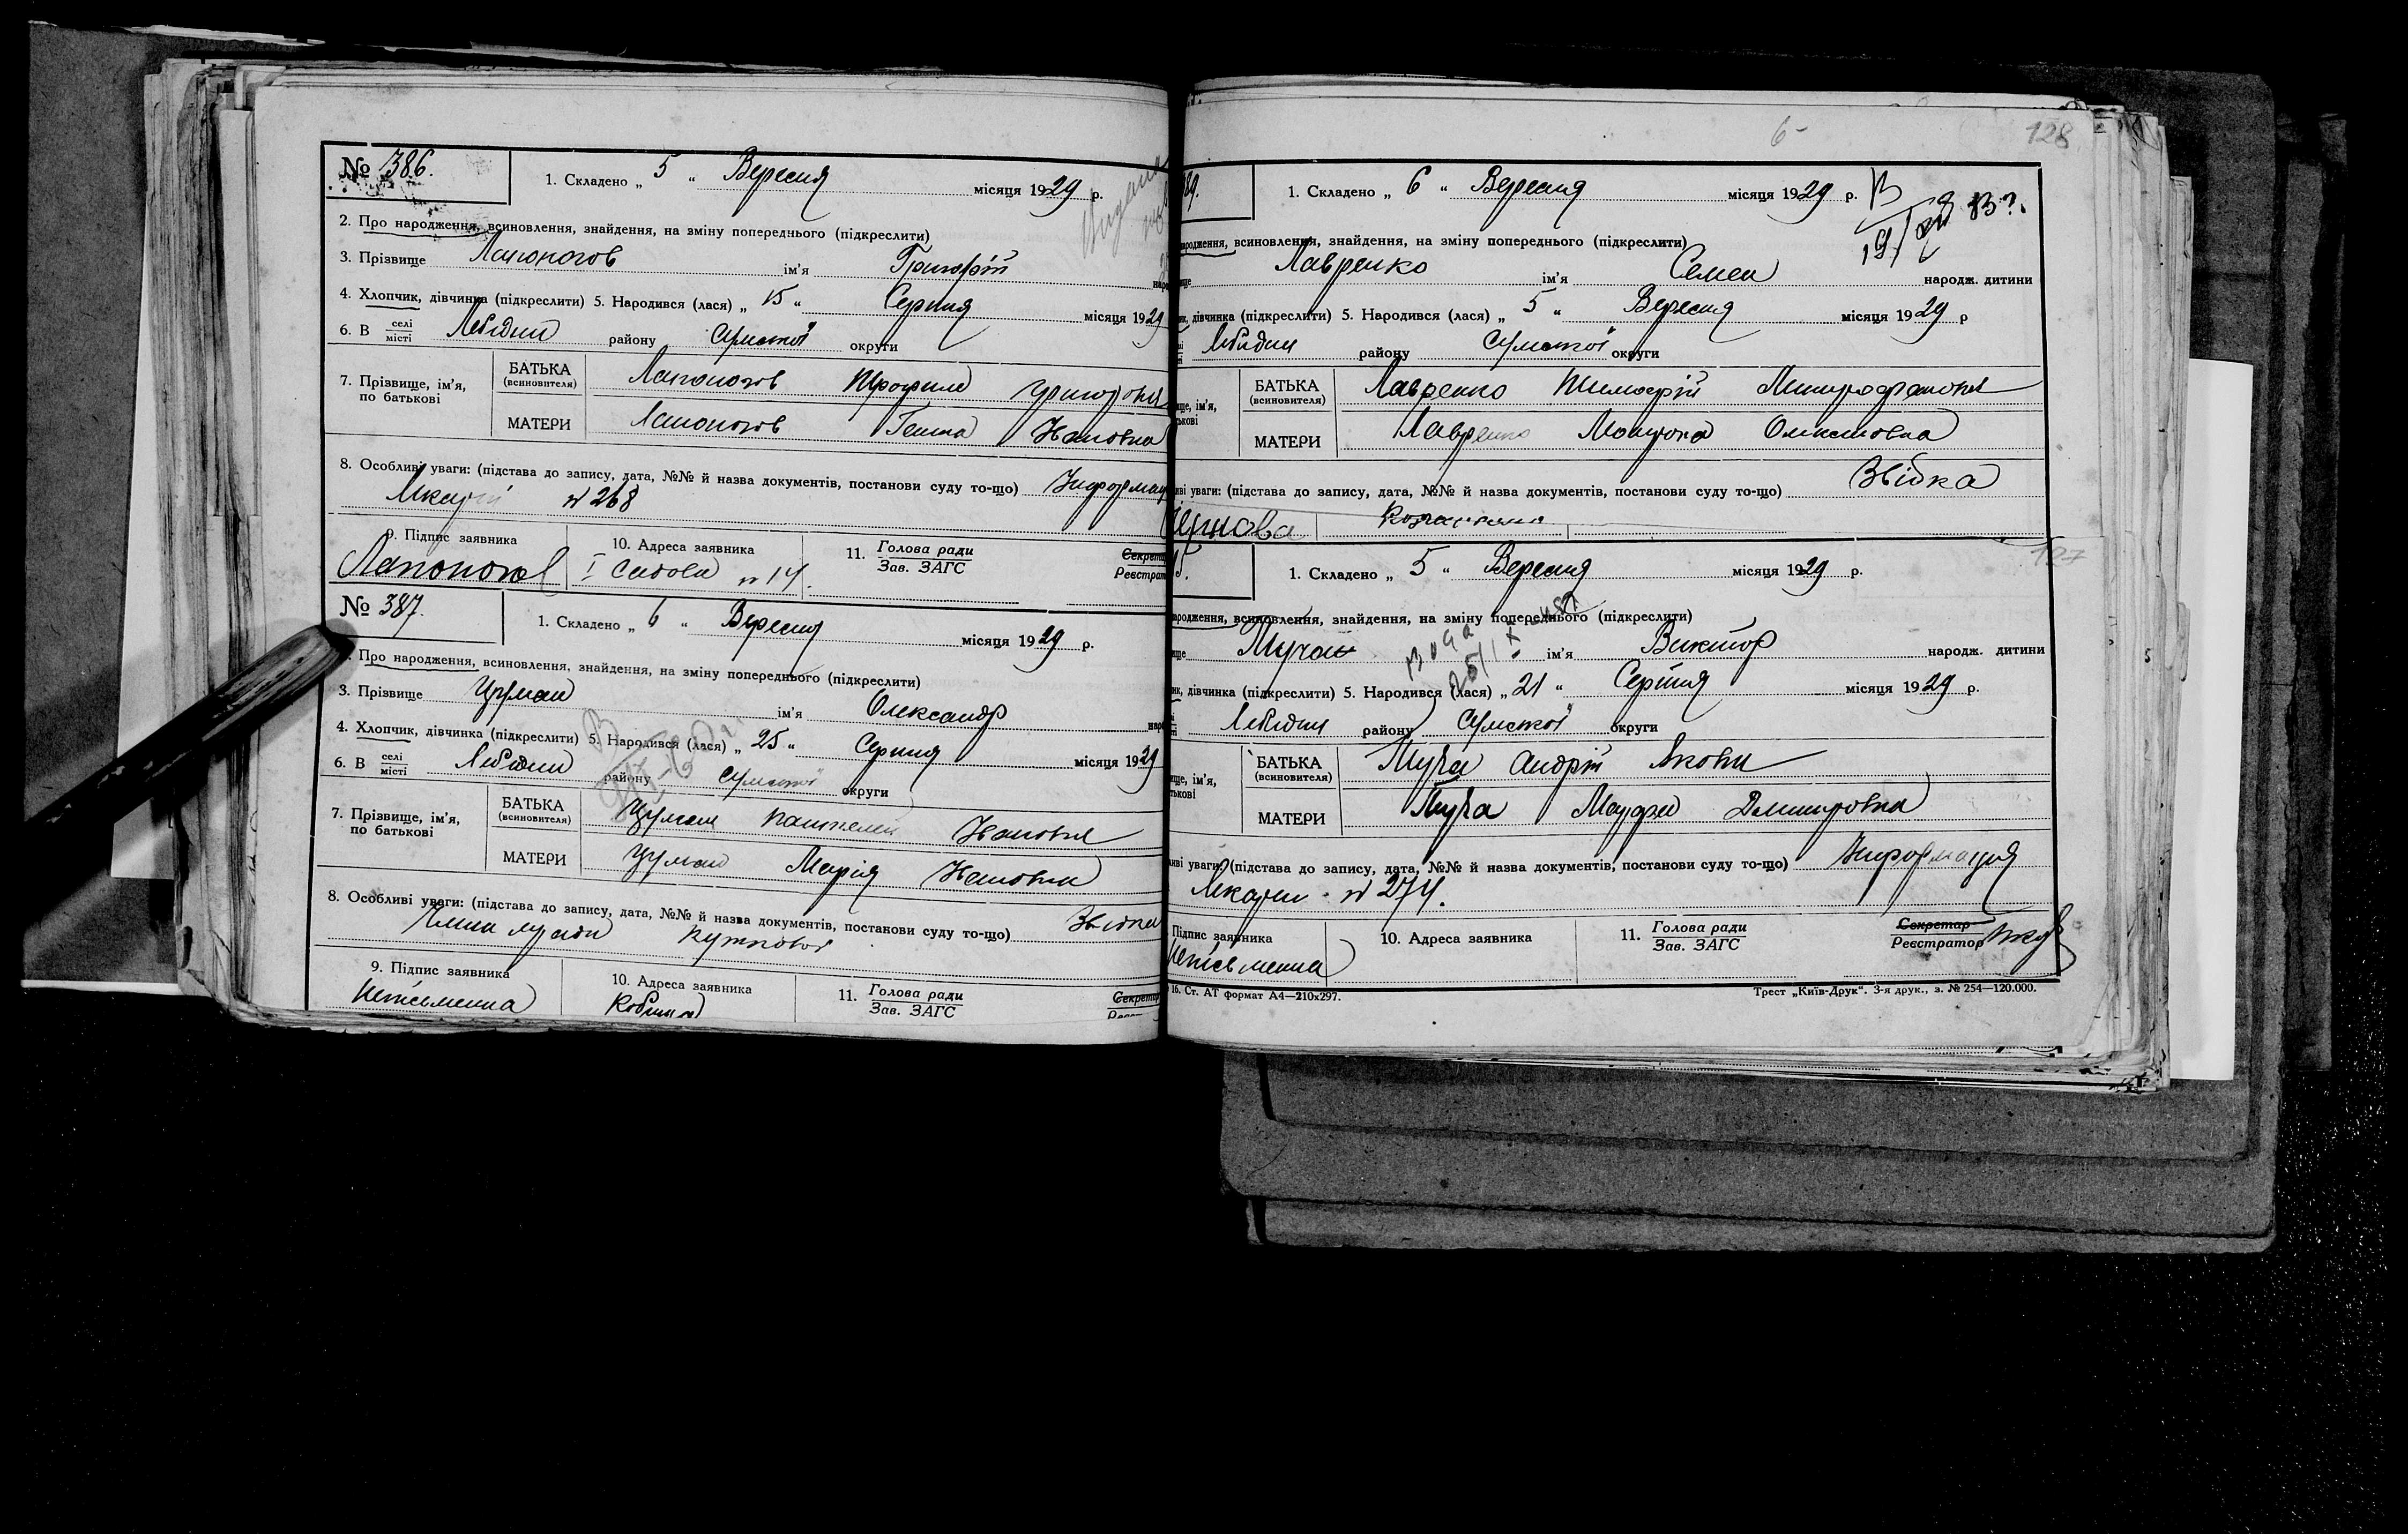 № 386.
1. Складено „ 5 “ Вересня місяця 1929 р.
2. Про народження, всиновлення, знайдення, на зміну попереднього (підкреслити)
3. Прізвище Лапоногов ім'я Григорій
4. Хлопчик, дівчинка (підкреслити) 5. Народився (лася) „ 15 “ Серпня місяця 1929
6. В селі місті Лебедин району Сумської округи
7. Прізвище, ім'я, по батькові
БАТЬКА (всиновителя) Лапоногов Трофим Григорович
МАТЕРИ Лапоногов Ганна Івановна
8. Особливі уваги: (підстава до запису, дата, №№ й назва документів, постанови суду то-що) Інформац
Лікарні № 268
9. Підпис заявника Лапоногов
10. Адреса заявника I Садова № 14.
11. Голова ради Зав. ЗАГС
Секрета
Реєстрат
№ 387.
1. Складено „ 6 “ Вересня місяця 1929 р.
Про народження, всиновлення, знайдення, на зміну попереднього (підкреслити)
3. Прізвище Цуман ім'я Олександр
4. Хлопчик, дівчинка (підкреслити) 5. Народився (лася) „ 25 “ Серпня місяця 1929
6. В селі місті Лебедин району Сумської округи
7. Прізвище, ім'я, по батькові
БАТЬКА (всиновителя) Цуман Пантелей Іванович
МАТЕРИ Цуман Марія Івановна
8. Особливі уваги: (підстава до запису, дата, №№ й назва документів, постанови суду то-що) Звідка
9. Підпис заявника Неписьменна
10. Адреса заявника
11. Голова ради Зав. ЗАГС
Секрета
6-
128
89.
1. Складено „ 6 “ Вересня місяця 1929 р.
ародження, всиновлення, знайдення, на зміну попереднього (підкреслити)
ище Лавренко ім'я Семен народж. дитини
дівчинка (підкреслити) 5. Народився (лася) „ 5 “ Вересня місяця 1929 р
Лебедин району Сумської округи
ище, ім'я,
БАТЬКА (всиновителя) Лавренко Тимофій Митрофанович
МАТЕРИ Лавренко Мотрона
иві уваги: (підстава до запису, дата, №№ й назва документів, постанови суду то-що) Звідка
127
5.
1. Складено „ 5 “ Вересня місяця 1929 р.
ародження, всиновлення, знайдення, на зміну попереднього (підкреслити)
ище Муча ім'я Виктор народж. дитини
дівчинка (підкреслити) 5. Народився (лася) „ 21 “ Серпня місяця 1929 р.
Лебедин району Сумської округи
ище, ім'я,
БАТЬКА (всиновителя) Муча Андрій Якович
МАТЕРИ Муча Дмитровна
иві уваги: (підстава до запису, дата, №№ й назва документів, постанови суду то-що) Інформация
Лікарні № 274.
Підпис заявника Неписьменна
10. Адреса заявника
11. Голова ради Зав. ЗАГС
Секретар
Реєстратор
16. Ст. АТ формат А4—210х297.
Трест „Київ-Друк“. 3-я друк., з. № 254—120.000.